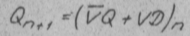 Qₙ₊₁ = (V̅Q + VD)ₙ